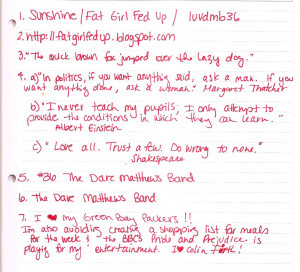 1. Sunshine / Fat Girl Fed Up / luvdmb36
2. http://fatgirlfedup.blogspot.com
3. "The quick brown fox jumped over the lazy dog."
4. a) "In politics, if you want anything said, ask a man. If you
want anything done, ask a woman." Margaret Thatcher
b) "I never teach my pupils; I only attempt to
provide the conditions in which they can learn."
Albert Einstein
c) "Love all. Trust a few. Do wrong to none."
Shakespeare
5. #36 The Dave Matthews Band
6. The Dave Matthews Band
7. I ♥ my Green Bay Packers!!
I'm also avoiding creating a shopping list for meals
for the week & the BBC's Pride and Prejudice is
playing for my entertainment. I ♥ Colin Firth!